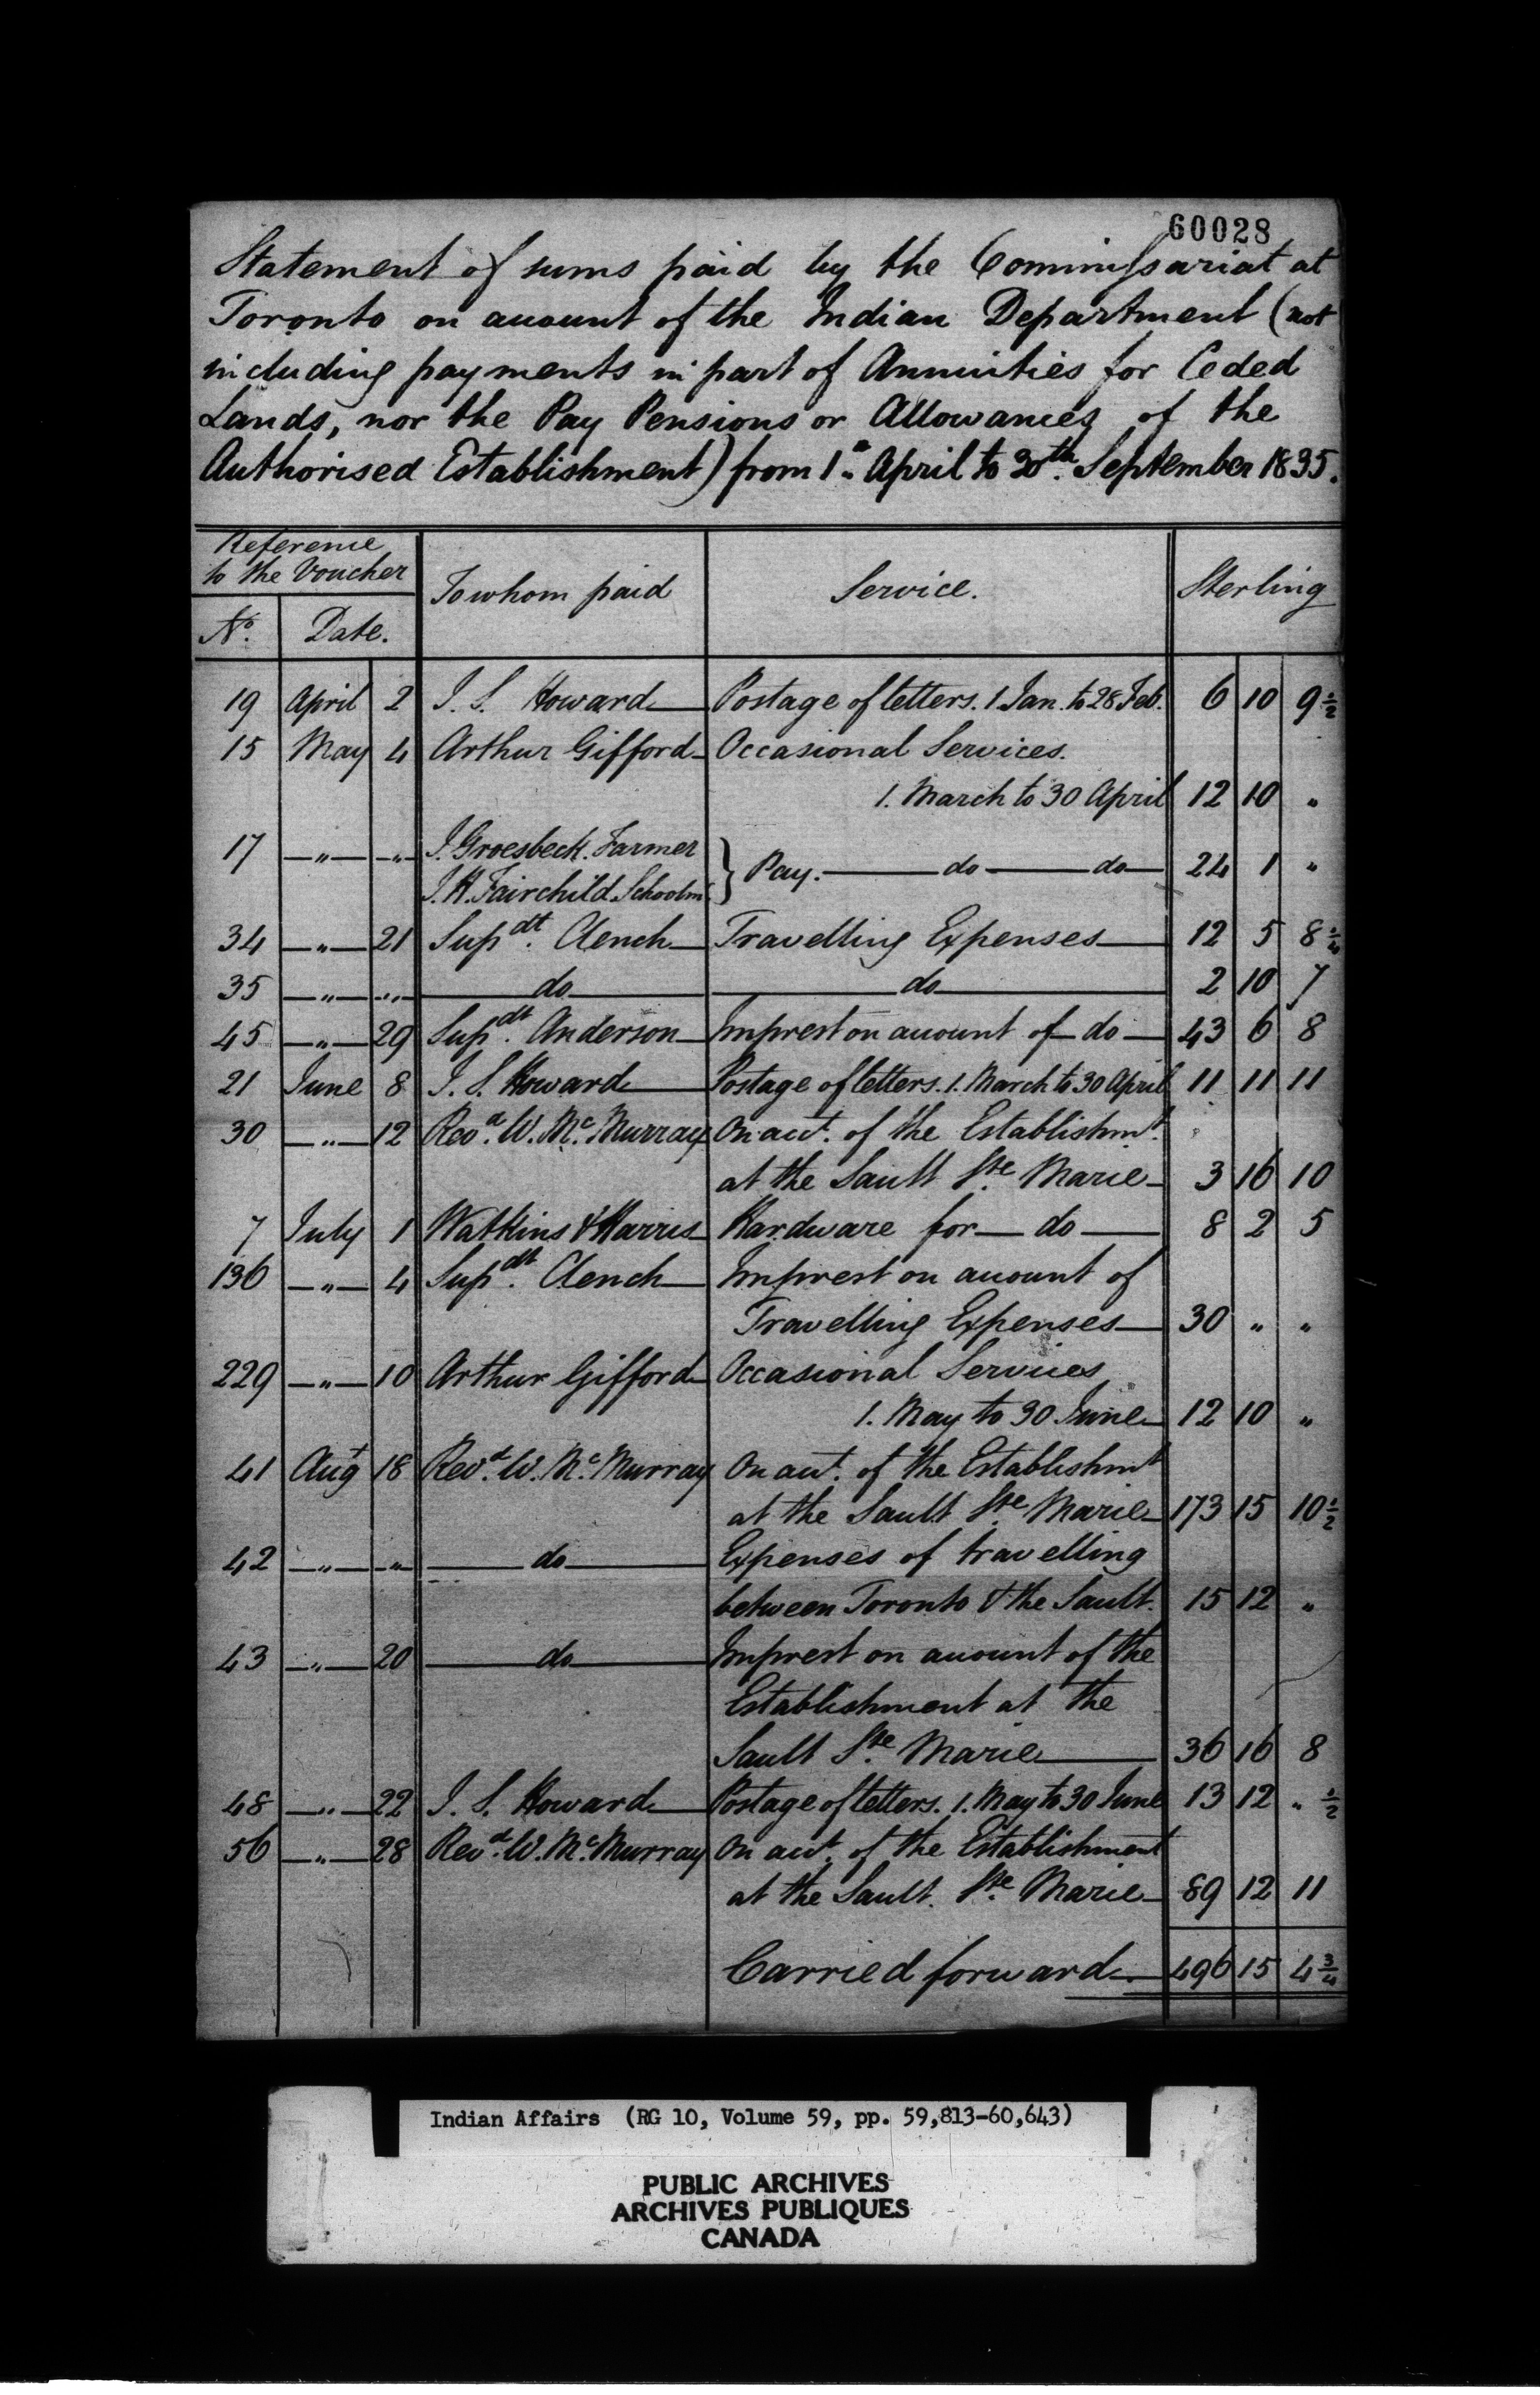 60028
Statement of sums paid by the Commissariat at
Toronto on account of the Indian Department (not
including payments in part of Annuities for Ceded
Lands, nor the Pay Pensions or Allowances of the
Authorised Establishment) from 1st April to 30th September 1835.
Reference to the Voucher | To whom paid | Service. | Sterling
No. | Date.
19 April 2 J. S. Howard Postage of letters. 1 Jan. to 28 Feb. 6 10 9 1/2
15 May 4 Arthur Gifford Occasional Services.
1. March to 30 April 12 10 "
17 " " J. Groesbeck. Farmer
J. H. Fairchild. Schoolmr. } Pay. do do 24 1 "
34 " 21 Supdt. Clench Travelling Expenses 12 5 8 1/4
35 " " do do 2 10 7
45 " 29 Supdt. Anderson Imprest on account of do 43 6 8
21 June 8 J. S. Howard Postage of letters. 1. March to 30 April 11 11 11
30 " 12 Revd. W. Mc.Murray On acct. of the Establishmt.
at the Sault Ste. Marie 3 16 10
7 July 1 Watkins & Harris Hardware for do 8 2 5
136 " 4 Supdt. Clench Imprest on account of
Travelling Expenses 30 " "
229 " 10 Arthur Gifford Occasional Services
1. May to 30 June 12 10 "
41 Augt 18 Revd. W. Mc.Murray On acct. of the Establishmt
at the Sault Ste. Marie 173 15 10 1/2
42 " " do Expenses of travelling
between Toronto & the Sault. 15 12 "
43 " 20 do Imprest on account of the
Establishment at the
Sault Ste. Marie 36 16 8
48 " 22 J. S. Howard Postage of letters. 1. May to 30 June 13 12 " 1/2
56 " 28 Revd. W. Mc.Murray On acct. of the Establishment
at the Sault. Ste. Marie 89 12 11
Carried forward 496 15 4 3/4
Indian Affairs (RG 10, Volume 59, pp. 59,813-60,643)
PUBLIC ARCHIVES
ARCHIVES PUBLIQUES
CANADA